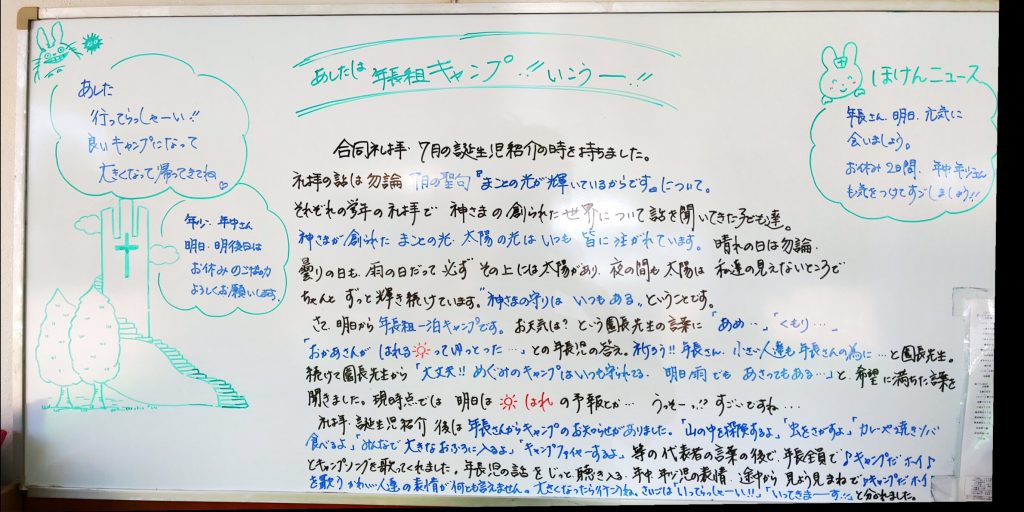 あしたは 年長組キャンプ!! いこうー!!
あした
行ってらっしゃーい!!
良いキャンプになって
大きくなって帰ってきてね♡
年少、年中さん
明日、明後日は
お休みのご協力
よろしくお願いします。
ほけんニュース
年長さん、明日、元気に
会いましょう。
お休み2日間、年中 年少さん
も気をつけてすごしましょう!!
合同礼拝・7月の誕生児紹介の時を持ちました。
礼拝の話は勿論 7月の聖句『まことの光が輝いているからです。』について。
それぞれの学年の礼拝で 神さまの創られた世界について話を聞いてきた子ども達。
神さまが創られた まことの光、太陽の光はいつも皆に注がれています。 晴れの日は勿論、
曇りの日も、雨の日だって必ず その上には太陽があり、夜の間も太陽は 私達の見えないところで
ちゃんと ずっと輝き続けています。"神さまの守りは いつもある。" ということです。
さて、明日から年長組一泊キャンプです。 お天気は? という園長先生の言葉に「あめ…」「くもり…」
「おかあさんが はれる☀ってゆっとった…」との年長児の答え。祈ろう!! 年長さん、小さい人達も年長さんの為に…と園長先生。
続けて園長先生から「大丈夫!! めぐみのキャンプはいつも守られてる、明日雨でも あさってもある…」と、希望に満ちた言葉を
聞きました。現時点では 明日は☀はれ の予報とか… うっそーっ!? すごいですね…
礼拝、誕生児紹介 後は 年長さんからキャンプのお知らせがありました。「山の中を探険するよ」「虫をさがすよ」「カレーや焼きソバ
食べるよ」「みんなで 大きなおふろに入るよ」「キャンプファイヤーするよ」 等の代表者の言葉の後で、年長全員で♪キャンプだホイ♪
とキャンプソングを歌ってくれました。年長児の話をじっと聴き入る、年中、年少児の表情、途中から 見よう見まねで♪キャンプだホイ♪
を歌う かわいい人達の表情が何とも言えません。大きくなったら行こうね。さいごは「いってらっしゃーい!!」「いってきまーす!!」と分かれました。